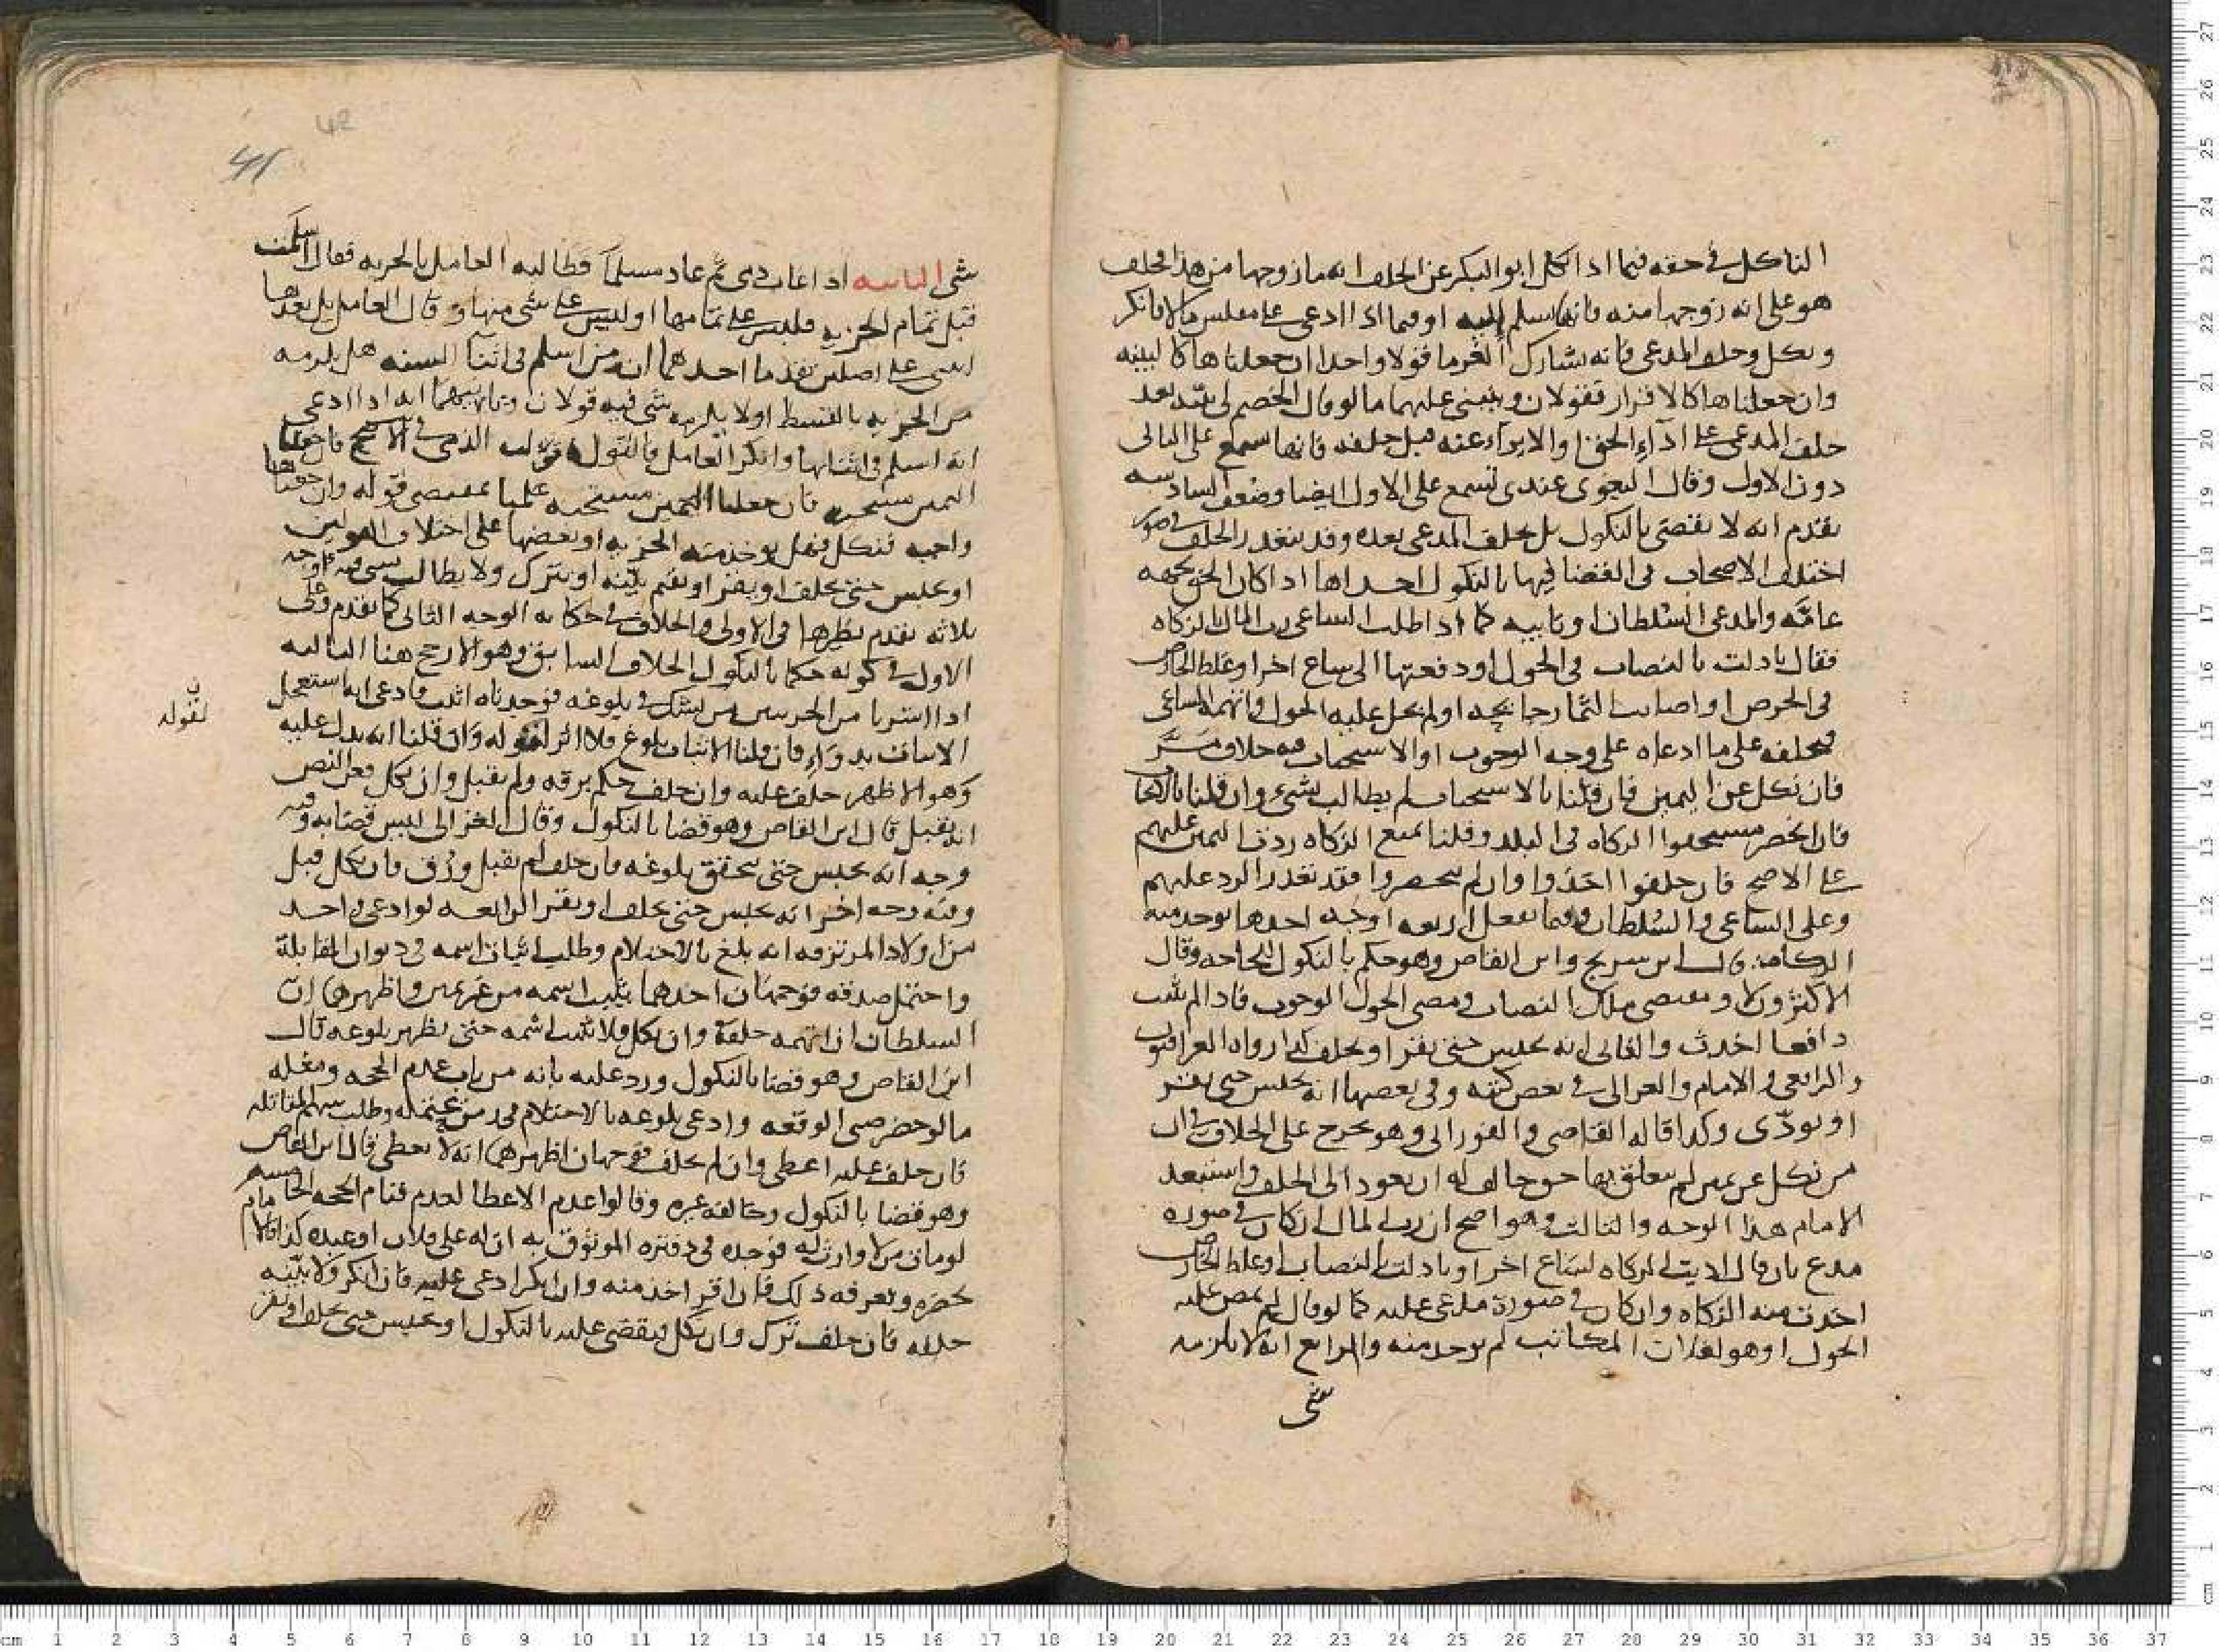 الناكل في حقه فيما اذا نكل ابو البكر عن الحلف انه ما زوجها من هذا فحلف
هو على انه زوجها منه فانها سلم اليه او فيما اذا ادعى على مفلس مالا فانكر
ونكل وحلف المدعى فانه يشارك الغرما قولا واحدا ان جعلناها كالبينه
وان جعلناها كالاقرار فقولان وينبنى عليهما ما لو قال الخصم لى بينه بعد
حلف المدعى على اداء الحق او الابراء عنه قبل حلفه فانها تسمع على الثانى
دون الاول وقال البغوى عندى تسمع على الاول ايضا وضعف السادسه
تقدم انه لا يقضى بالنكول بل يحلف المدعى بعده وقد يتعذر الحلف في صور
اختلف الاصحاب فى القضا فيها بالنكول احداها اذا كان الحق لجهه
عامه والمدعى السلطان او نايبه كما اذا طلب الساعى رب المال بالزكاه
فقال بادلت بالنصاب فى الحول او دفعتها الى ساع اخر او غلط الخارص
فى الخرص او اصابت الثمار جايحه او لم يحل عليه الحول فاتهمه الساعى
فيحلفه على ما ادعاه على وجه الوجوب او الاستحباب فيه خلاف مر
فان نكل عن اليمين فان قلنا بالاستحباب لم يطالب بشىء وان قلنا بالايجاب
فان انحصر مستحقوا الزكاه فى البلد وقلنا بمنع الزكاه ردت اليمين عليهم
على الاصح فان حلفوا اخذوا وان لم ينحصروا فقد تعذر الرد عليهم
وعلى الساعى والسلطان وفيما يفعل اربعه اوجه احدها يوخذ منه
الزكاه قال ابن سريج وابن القاص وهو حكم بالنكول للحاجه وقال
الاكثرون لا ومقتضى ملك النصاب ومضى الحول الوجوب فاذا لم يثبت
دافعا اخذت والثانى انه يحبس حتى يقر او يحلف كذا رواه العراقيون
والرافعى والامام والغزالى في بعض كتبه وفى بعضها انه يحبس حتى يقر
او يودى وكذا قاله القاضى والفورانى وهو يخرج على الخلاف في ان
من نكل عن يمين لم يتعلق بها حق حالف له ان يعود الى الحلف واستبعد
الامام هذا الوجه والثالث وهو اصح ان رب المال ان كان في صوره
مدع بان قال اديت الزكاه لساع اخر او بادلت بالنصاب او غلط الخارص
اخذت منه الزكاه وان كان في صورة مدعى عليه كما لو قال لم يمض عليه
الحول او هو لفلان المكاتب لم يوخذ منه والرابع انه لا يلزمه
شى
شى الثانيه اذا غاب ذمى ثم عاد مسلما فطالبه العامل بالجزيه فقال اسلمت
قبل تمام الجزيه فليس على تمامها او ليس على شى منها وقال العامل بل بعدها
انبنى على اصلين تقدما احدهما انه من اسلم فى اثنا السنه هل يلزمه
من الجزيه بالقسط او لا يلزمه شى فيه قولان وثانيهما انه اذا ادعى
انه اسلم فى اثنايها وانكر العامل فالقول قول الذمى في الاصح فان جعلنا
اليمين مستحبه فان جعلنا اليمين مستحبه علمنا بمقتضى قوله وان جعلناها
واجبه فنكل فهل يوخذ منه الجزيه او بعضها على اختلاف القولين
او يحبس حتى يحلف او يقر او تقم بينه او يترك ولا يطالب بشى فيه اوجه
ثلاثه تقدم نظيرها فى الاولى والخلاف في حكايه الوجه الثانى كما تقدم وعلى
الاول في كونه حكما بالنكول الخلاف السابق وهو الارجح هنا الثالثه
اذا اسرنا من الحربيين من نشك في بلوغه فوجدناه انبت فادعى انه استعجل
الانبات بدواء فان قلنا الانبات بلوغ فلا اثر لقوله وان قلنا انه يدل عليه
وهو الاظهر حلف عليه وان حلف حكم برقه ولم يقتل وان نكل فعن النص
انه يقتل قال ابن القاص وهو قضا بالنكول وقال الغزالى ليس قضا به وفيه
وجه انه يحبس حتى يتحقق بلوغه فان حلف لم يقتل ورق فان نكل قتل
وفيه وجه اخر انه يحبس حتى يحلف او يقر الرابعه لو ادعى واحد
من اولاد المرتزقه انه بلغ بالاحتلام وطلب اثبات اسمه فى ديوان المقاتله
واحتمل صدقه فوجهان احدهما يثبت اسمه من غير يمين واظهرهما ان
السلطان ان اتهمه حلفه وان نكل فلا يثبت اسمه حتى يظهر بلوغه قال
ابن القاص وهو قضا بالنكول ورد عليه بانه من باب عدم الحجه ومثله
ما لو حضر صبى الوقعه وادعى بلوغه بالاحتلام فى زمن يحتمله وطلب سهم المقاتله
فان حلف عليه اعطى وان لم يحلف فوجهان اظهرهما انه لا يعطى قال ابن القاص
وهو قضا بالنكول وخالفه غيره وقالوا عدم الاعطا لعدم قيام الحجه الخامسه
لو مات من لا وارث له فوجد فى دفتره الموثوق به ان له على فلان او عبده كذا
بحضره وتعرفه ذلك فان اقر اخذ منه وان انكر ادعى عليه فان انكر ولا بينه
حلفه فان حلف ترك وان نكل فيقضى عليه بالنكول او يحبس حتى يحلف او يقر
لقوله
42
41